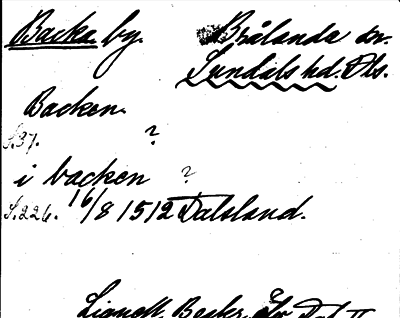 Backa by. Brålanda sn.
Sundals hd. Dls.
Backen.
S.37. ?
i backen ?
S.226. 16/8 1512 Dalsland.
Lignell, Beskr. Dal II